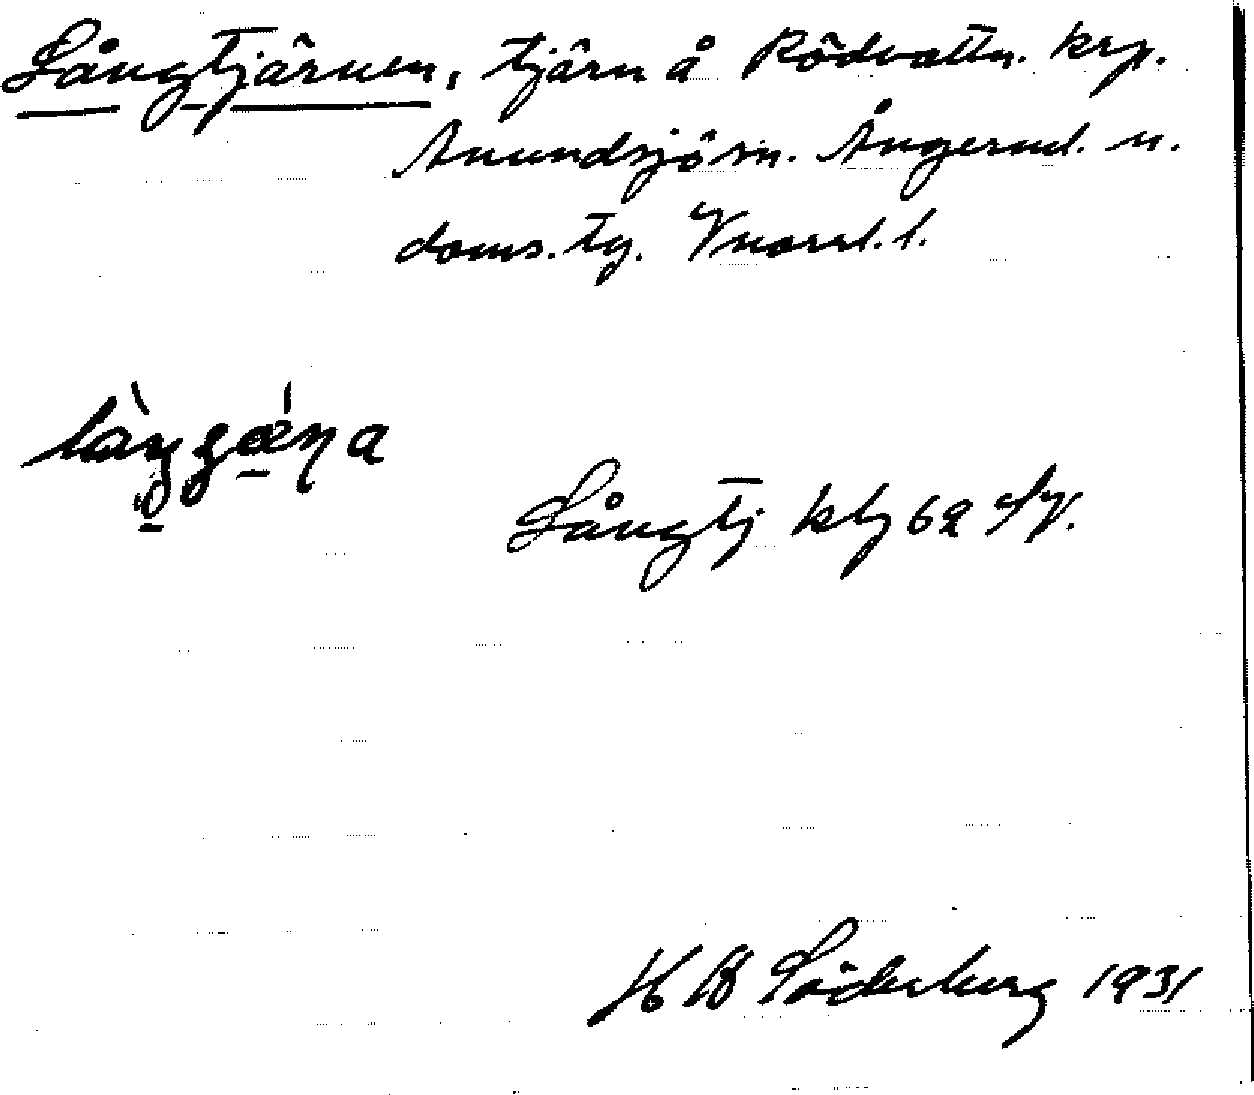 Långtjärnen, tjärn å Rödvattn. krp.
Anundsjö sn. Ångerml. n.
doms. tg. Vnorrl. l.
Långtj ktbl 62 SV.
H W Söderberg 1931